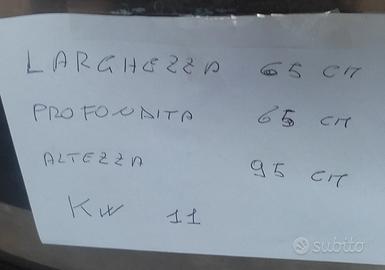 LARGHEZZA 65 CM
PROFONDITA 65 CM
ALTEZZA 95 CM
KW 11
subito